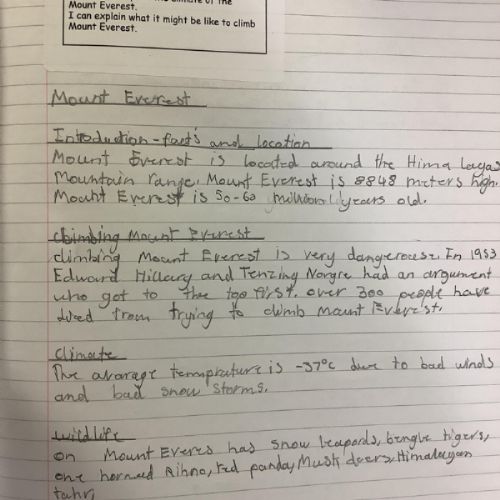 Mount Everest.
I can explain what it might be like to climb
Mount Everest.
Mount Everest
Introduction - facts and location
Mount Everest is located around the Hima layas
Mountain range. Mount Everest is 8848 meters high.
Mount Everest is 50-60 million years old.
Climbing Mount Everest
climbing Mount Everest is very dangerouse. In 1953
Edward Hillary and Tenzing Norgre had an argument
who got to the top first. over 300 people have
died from trying to climb Mount Everest.
Climate
The avarage temprature is -37°c due to bad winds
and bad snow storms.
wildlife
on Mount Everes has snow leapords, bengle tigers,
one horned Rihno, red panda, Musk deers, Himalayan
tahr,